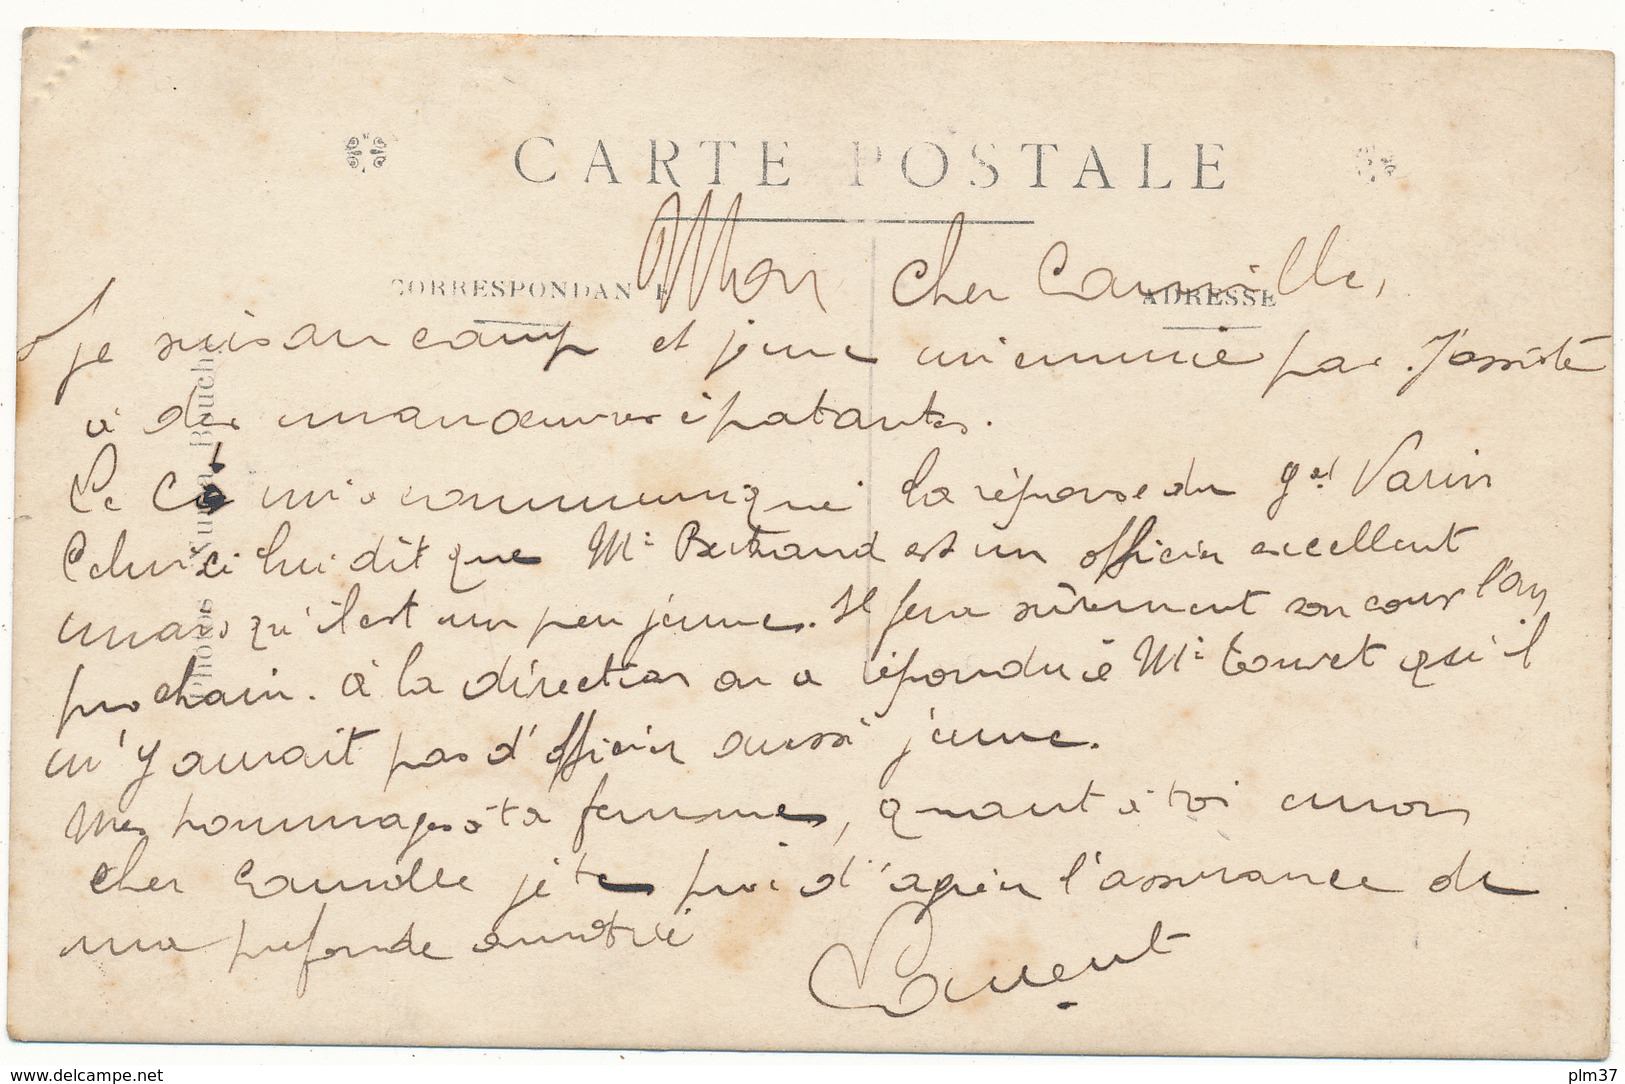 CARTE POSTALE
CORRESPONDANCE
ADRESSE
Mon cher Camille,
Je suis au camp et je ne m'ennuie pas. J'assiste
à des manœuvres épatantes.
Le Cé m'a communiqué la réponse du gal Varin
Celui ci lui dit que Mr Bertrand est un officier excellent
mais qu'il est un peu jeune. Il fera sûrement son cour l'an
prochain. à la direction on a répondu à Mr Touret qu'il
n'y aurait pas d'officier aussi jeune.
Mes hommages à ta femme, quant à toi mon
cher Camille je te prie d'agréer l'assurance de
ma profonde amitié
Laurent
Photos Bouch
www.delcampe.net
plm37